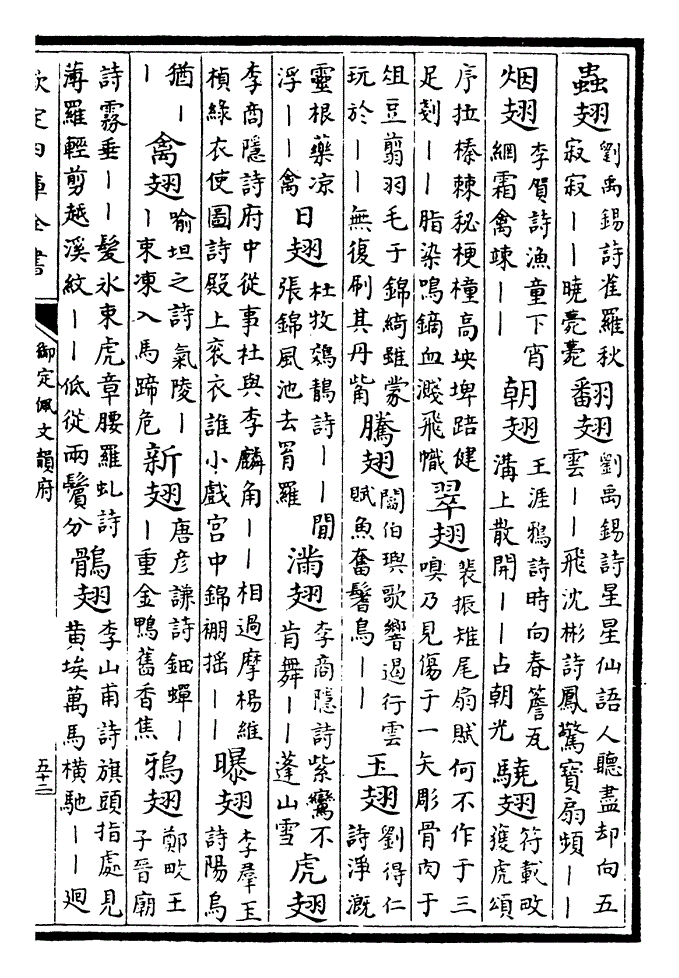 蟲翅劉禹錫詩雀羅秋寂寂丨丨曉薨薨翻翅劉禹錫詩星星仙語人聽盡却向五雲丨丨飛沈彬詩鳳驚寶扇頻丨丨
烟翅李賀詩漁童下宵網霜禽竦丨丨朝翅王涯鴉詩時向春簷瓦溝上散開丨丨占朝光驍翅符載畋獲虎頌
序拉榛棘秘梗橦高坱埤踣健足剗丨丨脂染鳴鏑血濺飛幟翠翅裴振雉尾扇賦何不作于三嗅乃見傷于一矢彫骨肉于
俎豆翦羽毛于錦綺雖蒙玩於丨丨無復刷其丹觜騰翅閻伯璵歌響遏行雲賦魚奮鬐鳥丨丨玉翅劉得仁詩淨溉
靈根藥凉浮丨丨禽日翅杜牧鵁鶄詩丨丨閒張錦風池去罥羅滿翅李商隱詩紫鸞不肯舞丨丨蓬山雪虎翅
李商隱詩府中從事杜與李麟角丨丨相過摩楊維楨綠衣使圖詩殿上衮衣誰小戲宫中錦棚摇丨丨曝翅李羣玉詩陽烏
猶丨丨禽翅喻坦之詩氣陵丨丨束凍入馬蹄危新翅唐彦謙詩鈿蟬丨丨重金鴨舊香焦鴉翅鄭畋王子晉廟
詩霧垂丨丨髮氷束虎章腰羅虬詩薄羅輕剪越溪紋丨丨低從兩鬢分鶻翅李山甫詩旗頭指處見黄埃萬馬横馳丨丨廻
欽定四庫全書
御定佩文韻府
五十三